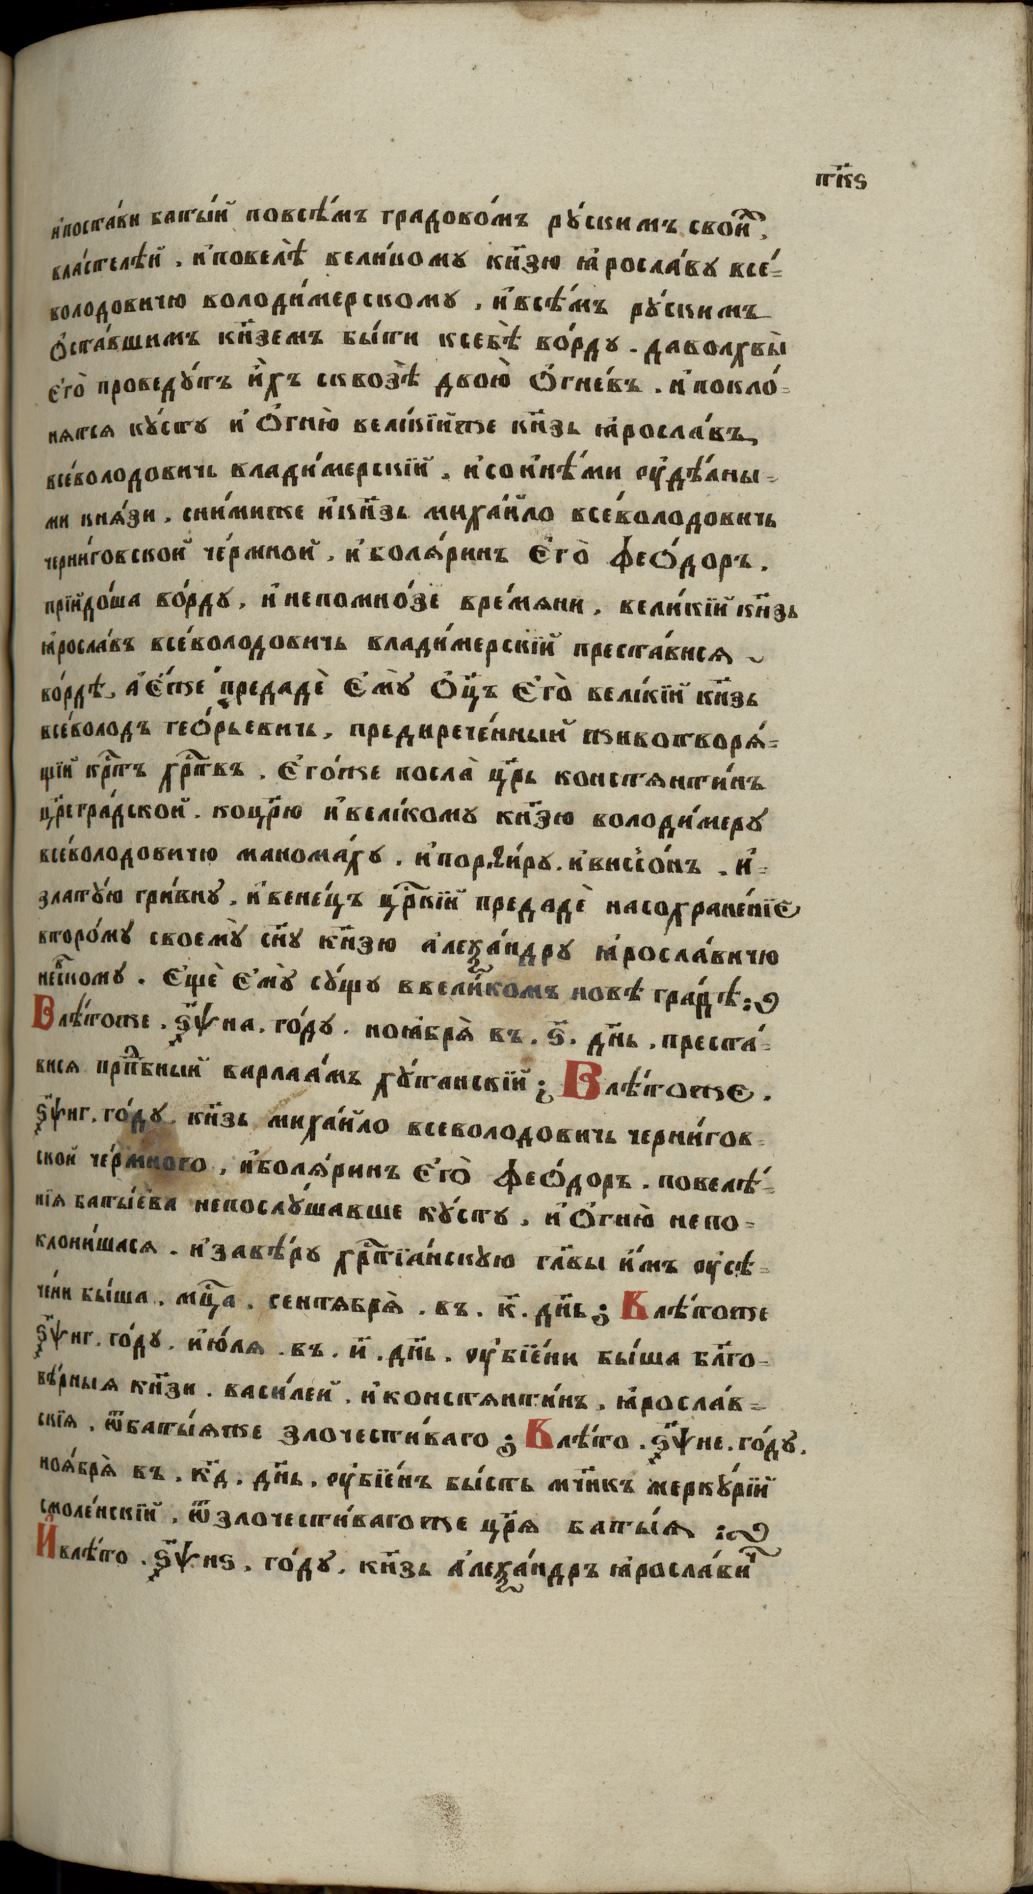 пк҃ѕ
и҆поста́ви баты́й повсѣ́мъ градово́мъ ру́скимъ свои҆́х.
вла́стелѣй . и҆повелѣ̀ вели́кому кн҃зю ꙗ҆росла́ву все́-
володовичю володи́мерскому , и҆всѣ́мъ ру́скимъ
ѻ҆ста́вшимъ кн҃земъ бы́ти ксебѣ̀ во́рду . даволхвы̀
є҆го̀ проведу́тъ и҆̀хъ сквозѣ̀ двою̀ ѻ҆́гневъ . и҆покло́-
нятся ку́сту и҆ ѻ҆гню̀ вели́кїйже кн҃зь ꙗ҆росла́въ
все́володовичь влади́мерскїй , и҆сои҆нѣ́ми ᲂу҆дѣ́лны-
ми кня́зи . сни́миже и҆кн҃зь миха́йло все́володовичь
черни́говской че́рмной , и҆боля́ринъ є҆го̀ феѻ́доръ .
прїидо́ша во́рду , и҆непомно́зе вре́мяни , вели́кїй кн҃зь
ꙗ҆росла́въ все́володовичь влади́мерскїй преста́вися
во́рдѣ , а҆є҆́же предадѐ є҆мꙋ̀ ѻ҆ц҃ъ є҆го̀ вели́кїй кн҃зь
все́володъ геѻ́рьевичь , предирече́нный животворя́-
щїй кр҃тъ хр҃твъ . є҆го́же посла̀ цр҃ь констянти́нъ
цр҃егра́дской . коцр҃ю и҆вели́кому кн҃зю володи́меру
все́володовичю манома́ху . и҆порѳи́ру . и҆виссо́нъ . и҆-
злату́ю гри́вну , и҆вене́цъ цр҃кїй предадѐ насохране́нїє
второ́му своемꙋ̀ сн҃у кн҃зю а҆леѯа́ндру ꙗ҆росла́вичю
не́вскому . є҆щѐ є҆мꙋ̀ су́щу ввели́комъ новѣ гра́дѣ :
Влѣ́тоже . ѕ҃ѱна . го́ду . ноꙗ҆бря̀ въ . ѕ҃ . дн҃ь . преста́-
вися прп҃бный варлаа́мъ ху́танскїй ; Влѣ́тоже .
ѕ҃ѱнг . го́ду . кн҃зь миха́йло всеволодовичь черни́гов-
ской че́рмного , и҆боля́ринъ є҆го̀ феѻ́доръ . повелѣ́-
нїя баты́ева непослу́шавше ку́сту , и҆ ѻ҆гню̀ непо-
клони́шася . и҆завѣ́ру хр҃тїа́нскую гл҃вы и҆́мъ ᲂу҆сѣ-
че́ни бы́ша . мц҃а . сентября̀ . въ . к҃ . дн҃ь ; Влѣ́тоже
ѕ҃ѱнг . го́ду . и҆ю́ля . въ . и҃ . дн҃ь . ᲂу҆бїе́ни бы́ша бл҃го-
вѣ́рныя кн҃зи . васи́лей , и҆констянти́нъ , ꙗ҆росла́в-
скїя , ѿбаты́яже злочести́ваго ; Влѣ́то . ѕ҃ѱне . го́ду .
ноя́бря̀ въ . к҃д . дн҃ь , ᲂу҆бїе́нъ бы́сть мч҃нкъ мерку́рїй
смоле́нскїй , ѿзлочести́вагоже цр҃я баты́я :
И҆влѣ́то . ѕ҃ѱнѕ , го́ду . кн҃зь а҆леѯа́ндръ ꙗ҆росла́вич